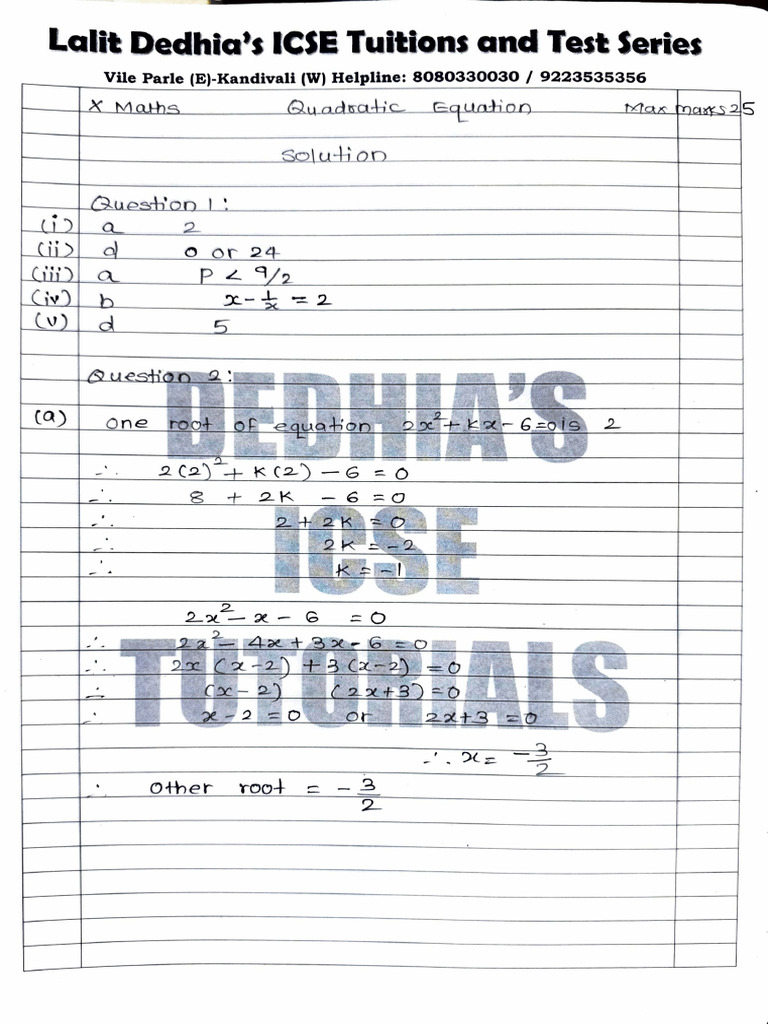 Lalit Dedhia's ICSE Tuitions and Test Series
Vile Parle (E)-Kandivali (W) Helpline: 8080330030 / 9223535356
X Maths Quadratic Equation Max marks 25
Solution
Question 1:
(i) a 2
(ii) d 0 or 24
(iii) a P < 9/2
(iv) b x - 1/x = 2
(v) d 5
Question 2:
(a) One root of equation 2x² + kx - 6 = 0 is 2
∴ 2(2)² + k(2) - 6 = 0
∴ 8 + 2k - 6 = 0
∴ 2 + 2k = 0
∴ 2k = -2
∴ k = -1
2x² - x - 6 = 0
∴ 2x² - 4x + 3x - 6 = 0
∴ 2x (x-2) + 3(x-2) = 0
∴ (x-2) (2x+3) = 0
∴ x - 2 = 0 or 2x+3 = 0
∴ x = -3/2
∴ Other root = -3/2
DEDHIA'S
ICSE
TUTORIALS